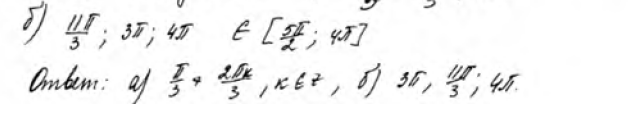 б) 11π/3; 3π; 4π ∈ [5π/2; 4π]
Ответ: а) π/3 + 2πк/3, к ∈ z, б) 3π, 11π/3; 4π.